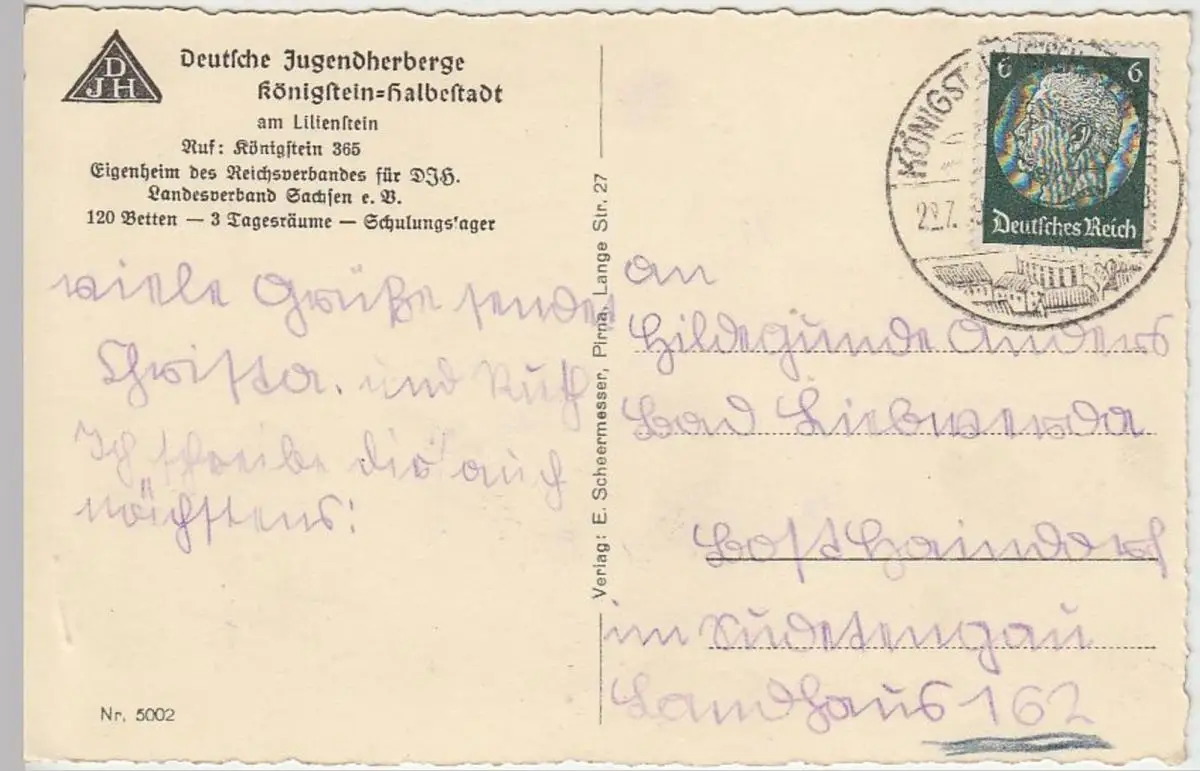 DJH
Deutsche Jugendherberge
Königstein=Halbestadt
am Lilienstein
Ruf: Königstein 365
Eigenheim des Reichsverbandes für DJH.
Landesverband Sachsen e. V.
120 Betten — 3 Tagesräume — Schulungslager
viele Grüße sendet
Christa. und Ruth
Ich schreibe dir auch
nächstens!
Nr. 5002
Verlag: E. Scheermesser, Pirna, Lange Str. 27
KÖNIGST
22.7.
6 6
Deutsches Reich
an
Hildegunde Anders
Bad Liebwerda
Post Haindorf
im Sudetengau
Landhaus 162